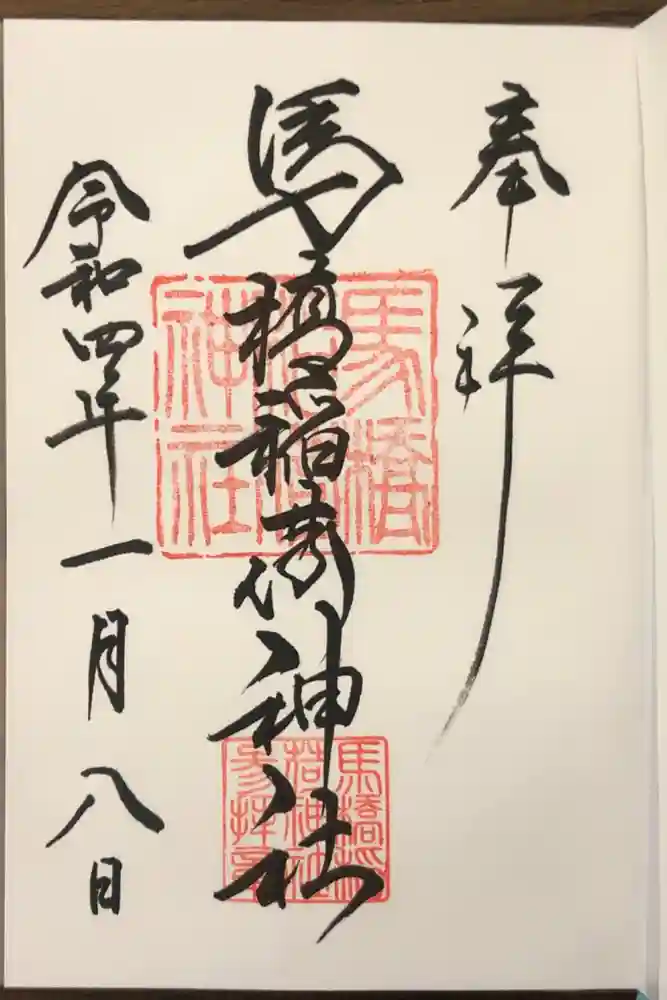 奉拝
馬橋稲荷神社
令和四年一月八日
馬橋
稲荷
神社
馬橋稲
荷神社
参拝章